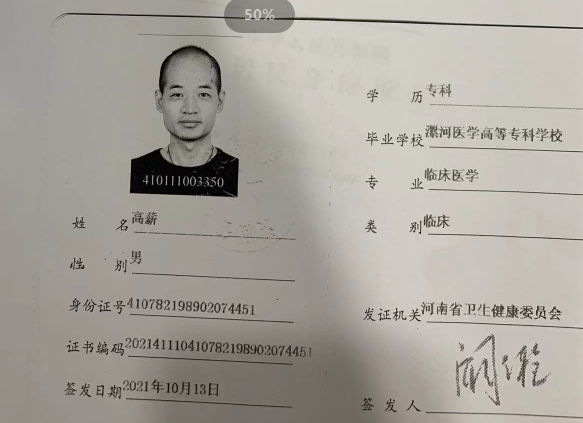 50%
410111003350
姓 名 高薪
性 别 男
身份证号 410782198902074451
证书编码 202141110410782198902074451
签发日期 2021年10月13日
学 历 专科
毕业学校 漯河医学高等专科学校
专 业 临床医学
类 别 临床
发证机关 河南省卫生健康委员会
签 发 人